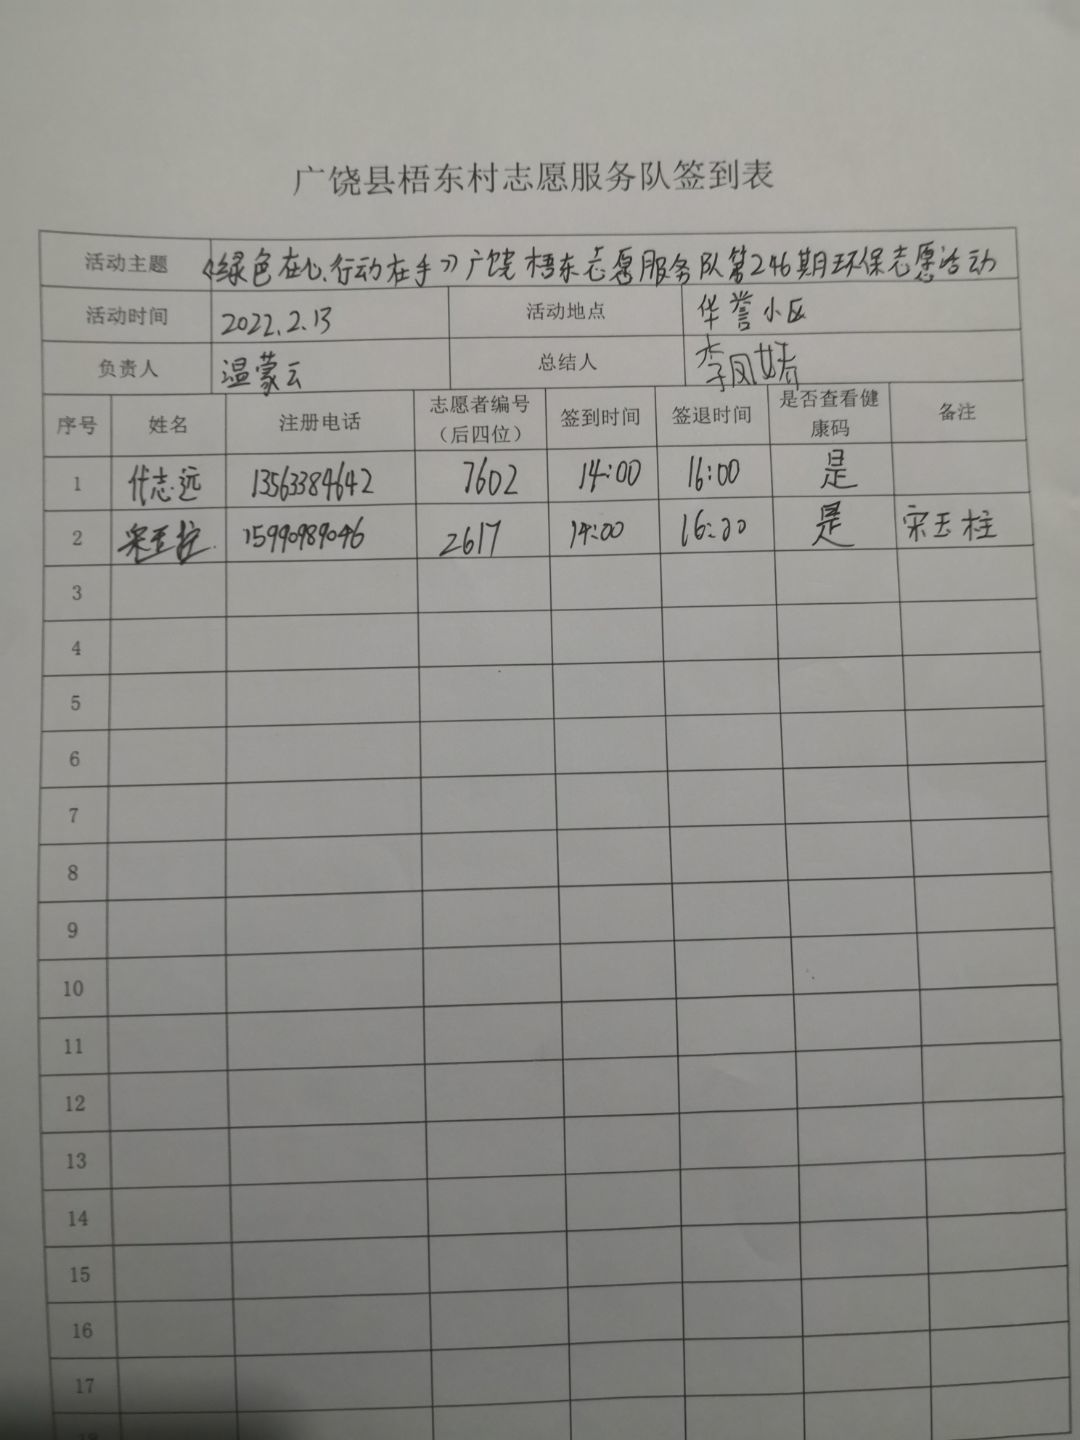 广饶县梧东村志愿服务队签到表
活动主题 《绿色在心,行动在手》广饶梧东志愿服务队第246期环保志愿活动
活动时间 2022.2.13 活动地点 华誉小区
负责人 温蒙云 总结人 李凤婧
序号 姓名 注册电话 志愿者编号（后四位） 签到时间 签退时间 是否查看健康码 备注
1 代志远 13563384642 7602 14:00 16:00 是
2 宋玉柱 15990989046 2617 14:00 16:00 是 宋玉柱
3
4
5
6
7
8
9
10
11
12
13
14
15
16
17